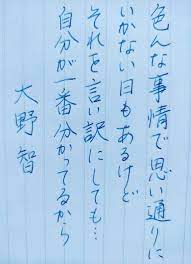 色んな事情で思い通りに
いかない日もあるけど
それを言い訳にしても…
自分が一番分かってるから
大野智